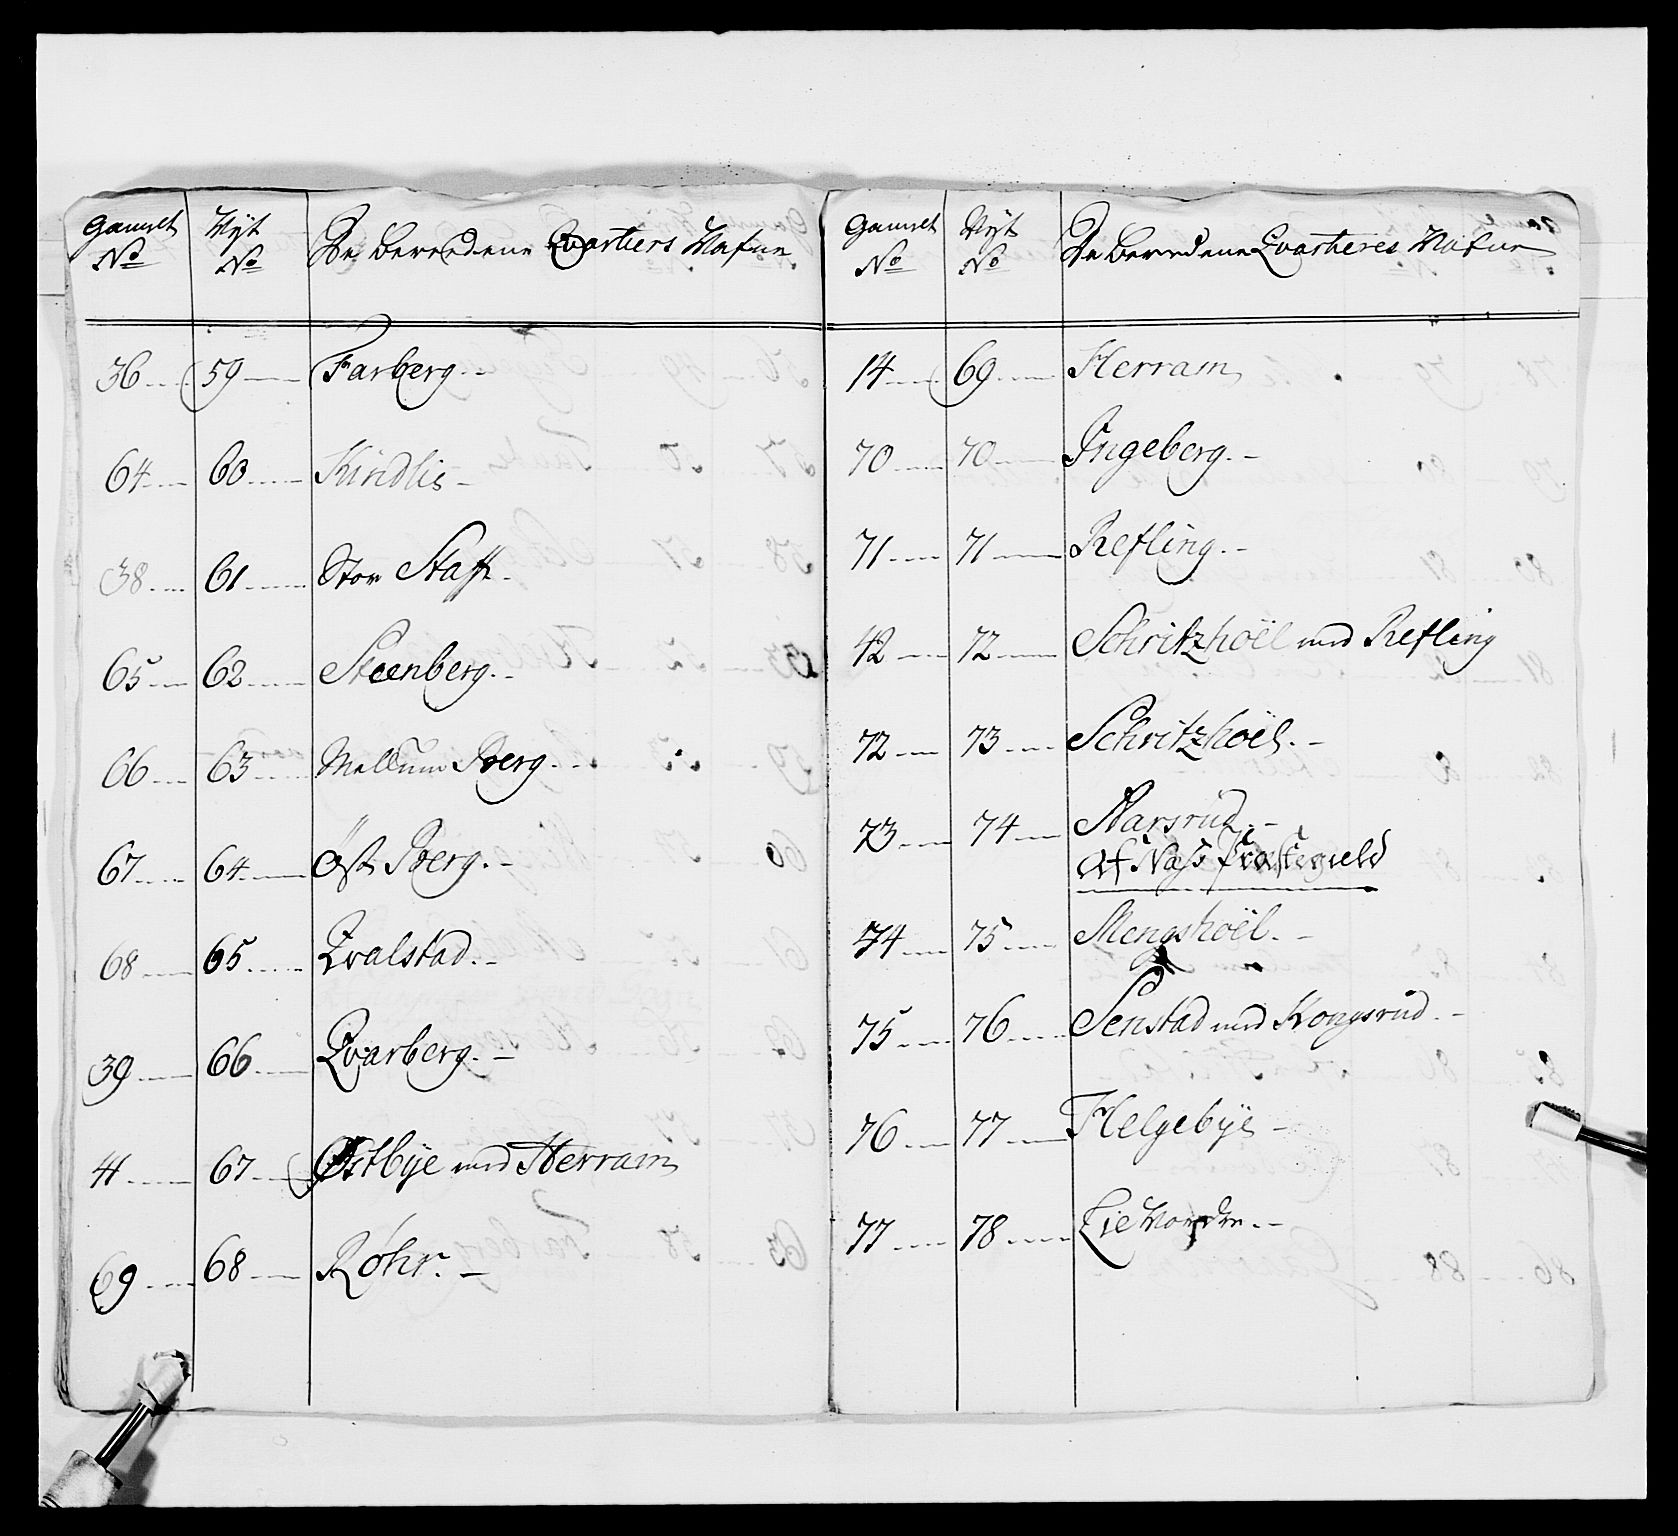 Gamelt No Nyt No De beredene Qvartiers Nafne
36 59 Farberg.
64 60 Kindlis
38 61 Stor Staff.
65 62 Steenberg.
66 63 Mellum Berg.
67 64 Öst Berg.
68 65 Qvalstad.
39 66 Qvarberg.
41 67 Østbye med Herram
69 68 Røhr.
Gamelt No Nyt No De beredene Qvartieres Nafne
14 69 Herram
70 70 Ingeberg.
71 71 Refling.
42 72 Schritzhoël med Refling
72 73 Schritzhoël.
73 74 Narsrud.
Af Næss Præstegield
74 75 Mengshoël.
75 76 Senstad med Kongsrud.
76 77 Helgebye
77 78 Lie Nordre.